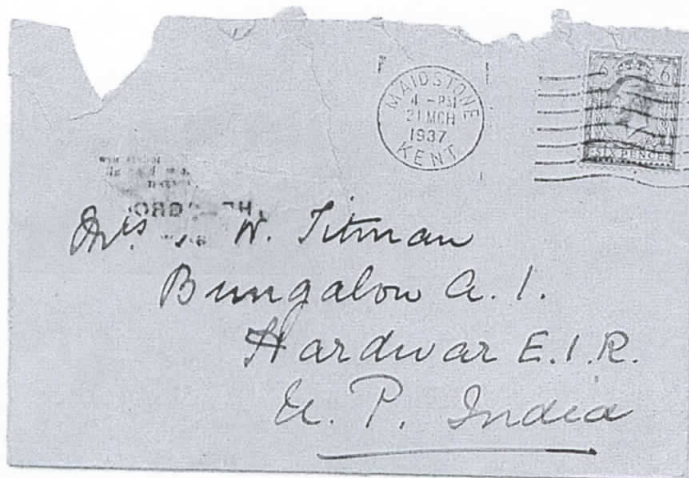 MAIDSTONE
4 - PM
21 MCH
1937
KENT
6 6
SIX PENCE
Mrs W. Titman
Bungalow A. 1.
Hardwar E.I.R.
U. P. India